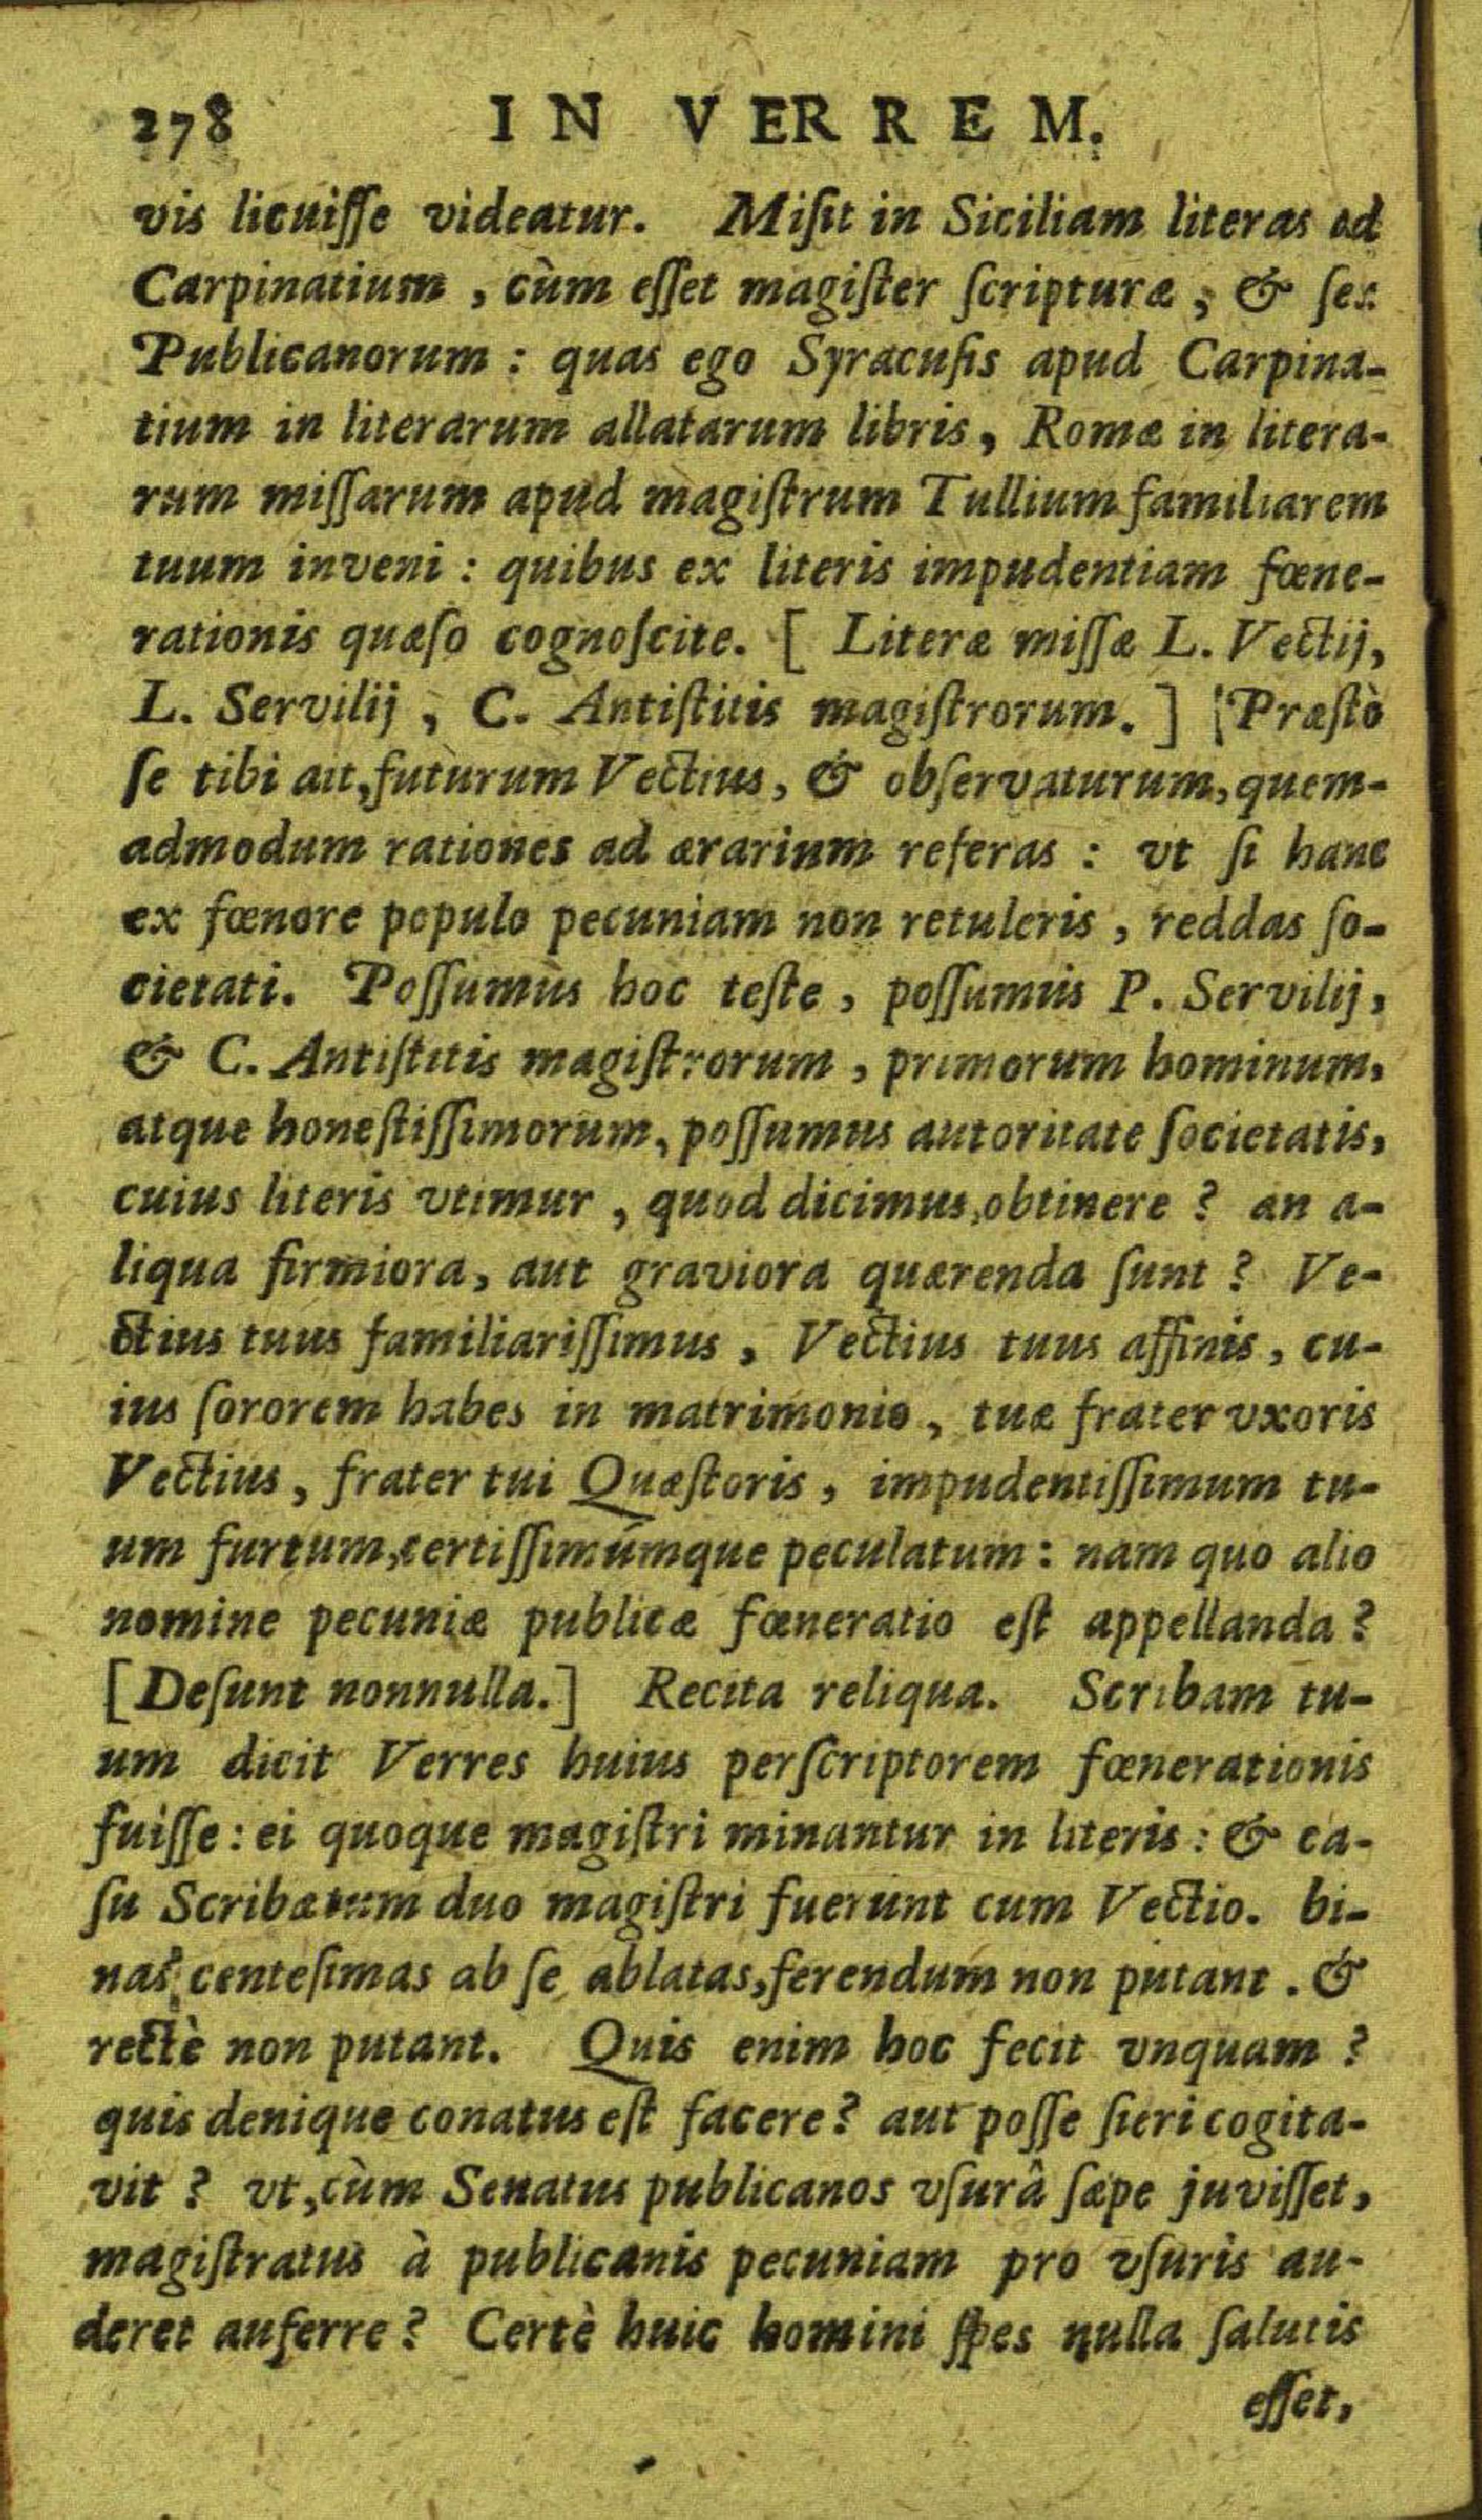 278 IN VERREM.
vis licuiſſe videatur. Miſit in Siciliam literas ad
Carpinatium, cùm eſſet magiſter ſcripturæ, & ſex
Publicanorum: quas ego Syracuſis apud Carpina-
tium in literarum allatarum libris, Romæ in litera-
rum miſſarum apud magiſtrum Tullium familiarem
tuum inveni: quibus ex literis impudentiam fœne-
rationis quæſo cognoſcite. [ Literæ miſſæ L. Vectij,
L. Servilij, C. Antiſtitis magiſtrorum. ] Præſtò
ſe tibi ait, futurum Vectius, & obſervaturum, quem-
admodum rationes ad ærarium referas: vt ſi hanc
ex fœnore populo pecuniam non retuleris, reddas ſo-
cietati. Poſſumus hoc teſte, poſſumus P. Servilij,
& C. Antiſtitis magiſtrorum, primorum hominum,
atque honeſtiſſimorum, poſſumus autoritate ſocietatis,
cuius literis vtimur, quod dicimus, obtinere? an a-
liqua firmiora, aut graviora quærenda ſunt? Ve-
ctius tuus familiariſſimus, Vectius tuus affinis, cu-
ius ſororem habes in matrimonio, tuæ frater vxoris
Vectius, frater tui Quæſtoris, impudentiſſimum tu-
um furtum, certiſſimúmque peculatum: nam quo alio
nomine pecuniæ publicæ fœneratio eſt appellanda?
[Deſunt nonnulla.] Recita reliqua. Scribam tu-
um dicit Verres huius perſcriptorem fœnerationis
fuiſſe: ei quoque magiſtri minantur in literis: & ca-
ſu Scribarum duo magiſtri fuerunt cum Vectio. bi-
nas centeſimas ab ſe ablatas, ferendum non putant. &
rectè non putant. Quis enim hoc fecit vnquam?
quis denique conatus eſt facere? aut poſſe fieri cogita-
vit? vt, cùm Senatus publicanos vſurâ ſæpe juviſſet,
magiſtratus à publicanis pecuniam pro vſuris au-
deret auferre? Certè huic homini ſpes nulla ſalutis
eſſet,